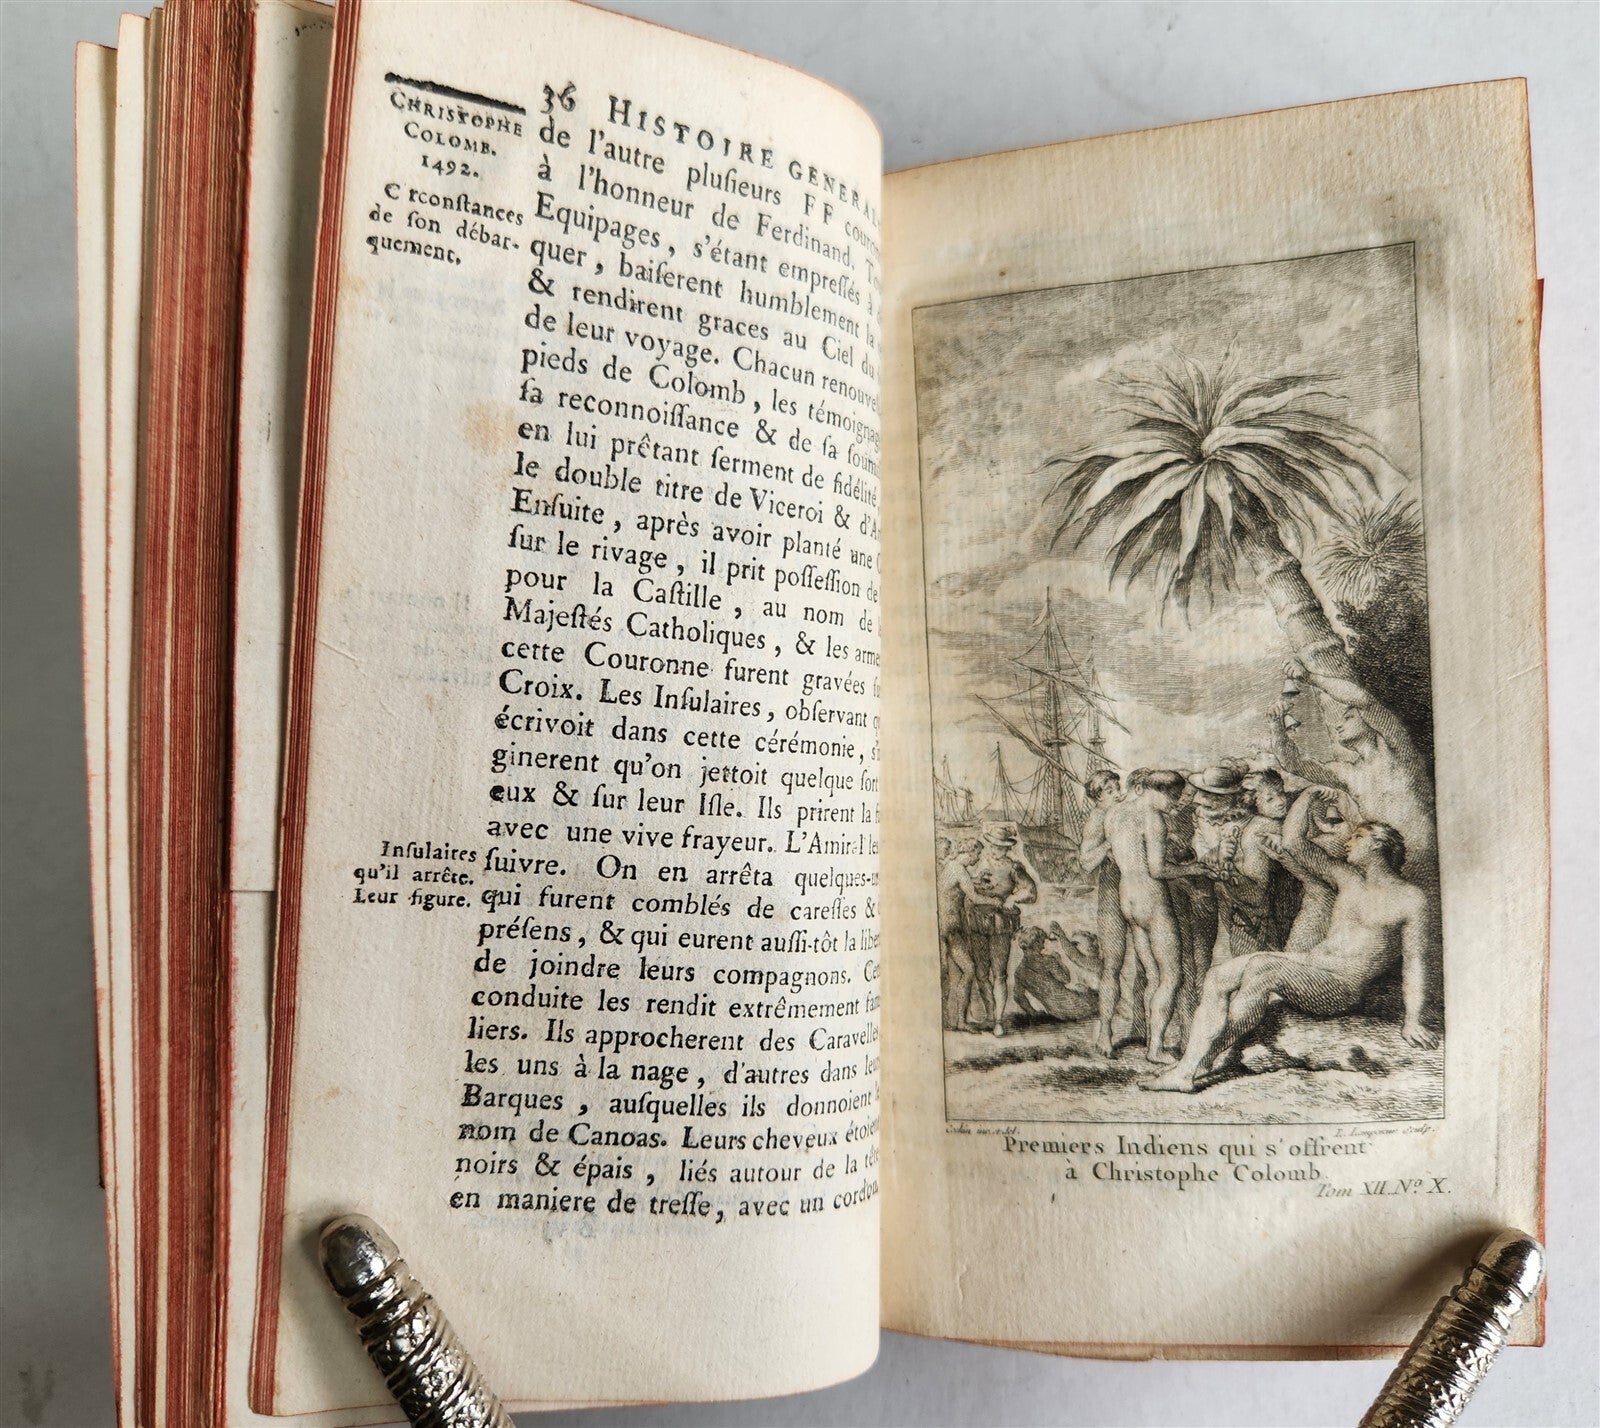 36 HISTOIRE GENERAL
CHRISTOPHE
COLOMB.
1492.
C rconſtances
de ſon débar-
quement.
de l'autre pluſieurs FF
à l'honneur de Ferdinand.
Equipages, s'étant empreſſés à
quer, baiſerent humblement la
& rendirent graces au Ciel du
de leur voyage. Chacun renouvel
pieds de Colomb, les témoignag
ſa reconnoiſſance & de ſa ſoumi
en lui prêtant ſerment de fidélité,
le double titre de Viceroi & d'A
Enſuite, après avoir planté une
ſur le rivage, il prit poſſeſſion de
pour la Caſtille, au nom de
Majeſtés Catholiques, & les arme
cette Couronne furent gravées ſu
Croix. Les Inſulaires, obſervant q
écrivoit dans cette cérémonie, s'i
ginerent qu'on jettoit quelque ſort
eux & ſur leur Iſle. Ils prirent la f
avec une vive frayeur. L'Amiral les
Inſulaires
qu'il arrête.
Leur figure.
ſuivre. On en arrêta quelques-u
qui furent comblés de careſſes &
préſens, & qui eurent auſſi-tôt la liber
de joindre leurs compagnons. Cet
conduite les rendit extrêmement fam
liers. Ils approcherent des Caravelles
les uns à la nage, d'autres dans leurs
Barques, auſquelles ils donnoient le
nom de Canoas. Leurs cheveux étoien
noirs & épais, liés autour de la tête
en maniere de treſſe, avec un cordon
Premiers Indiens qui s'offrent
à Christophe Colomb.
Tom XII. Nº X.